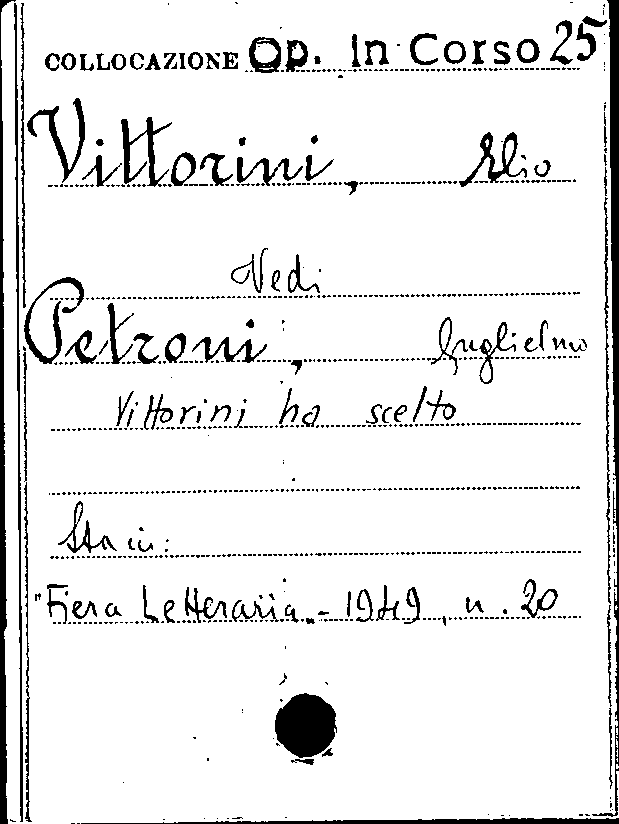 COLLOCAZIONE Op. In Corso 25
Vittorini, Elio
Vedi
Petroni, Guglielmo
Vittorini ha scelto
Sta in:
"Fiera Letteraria" - 1949, n. 20